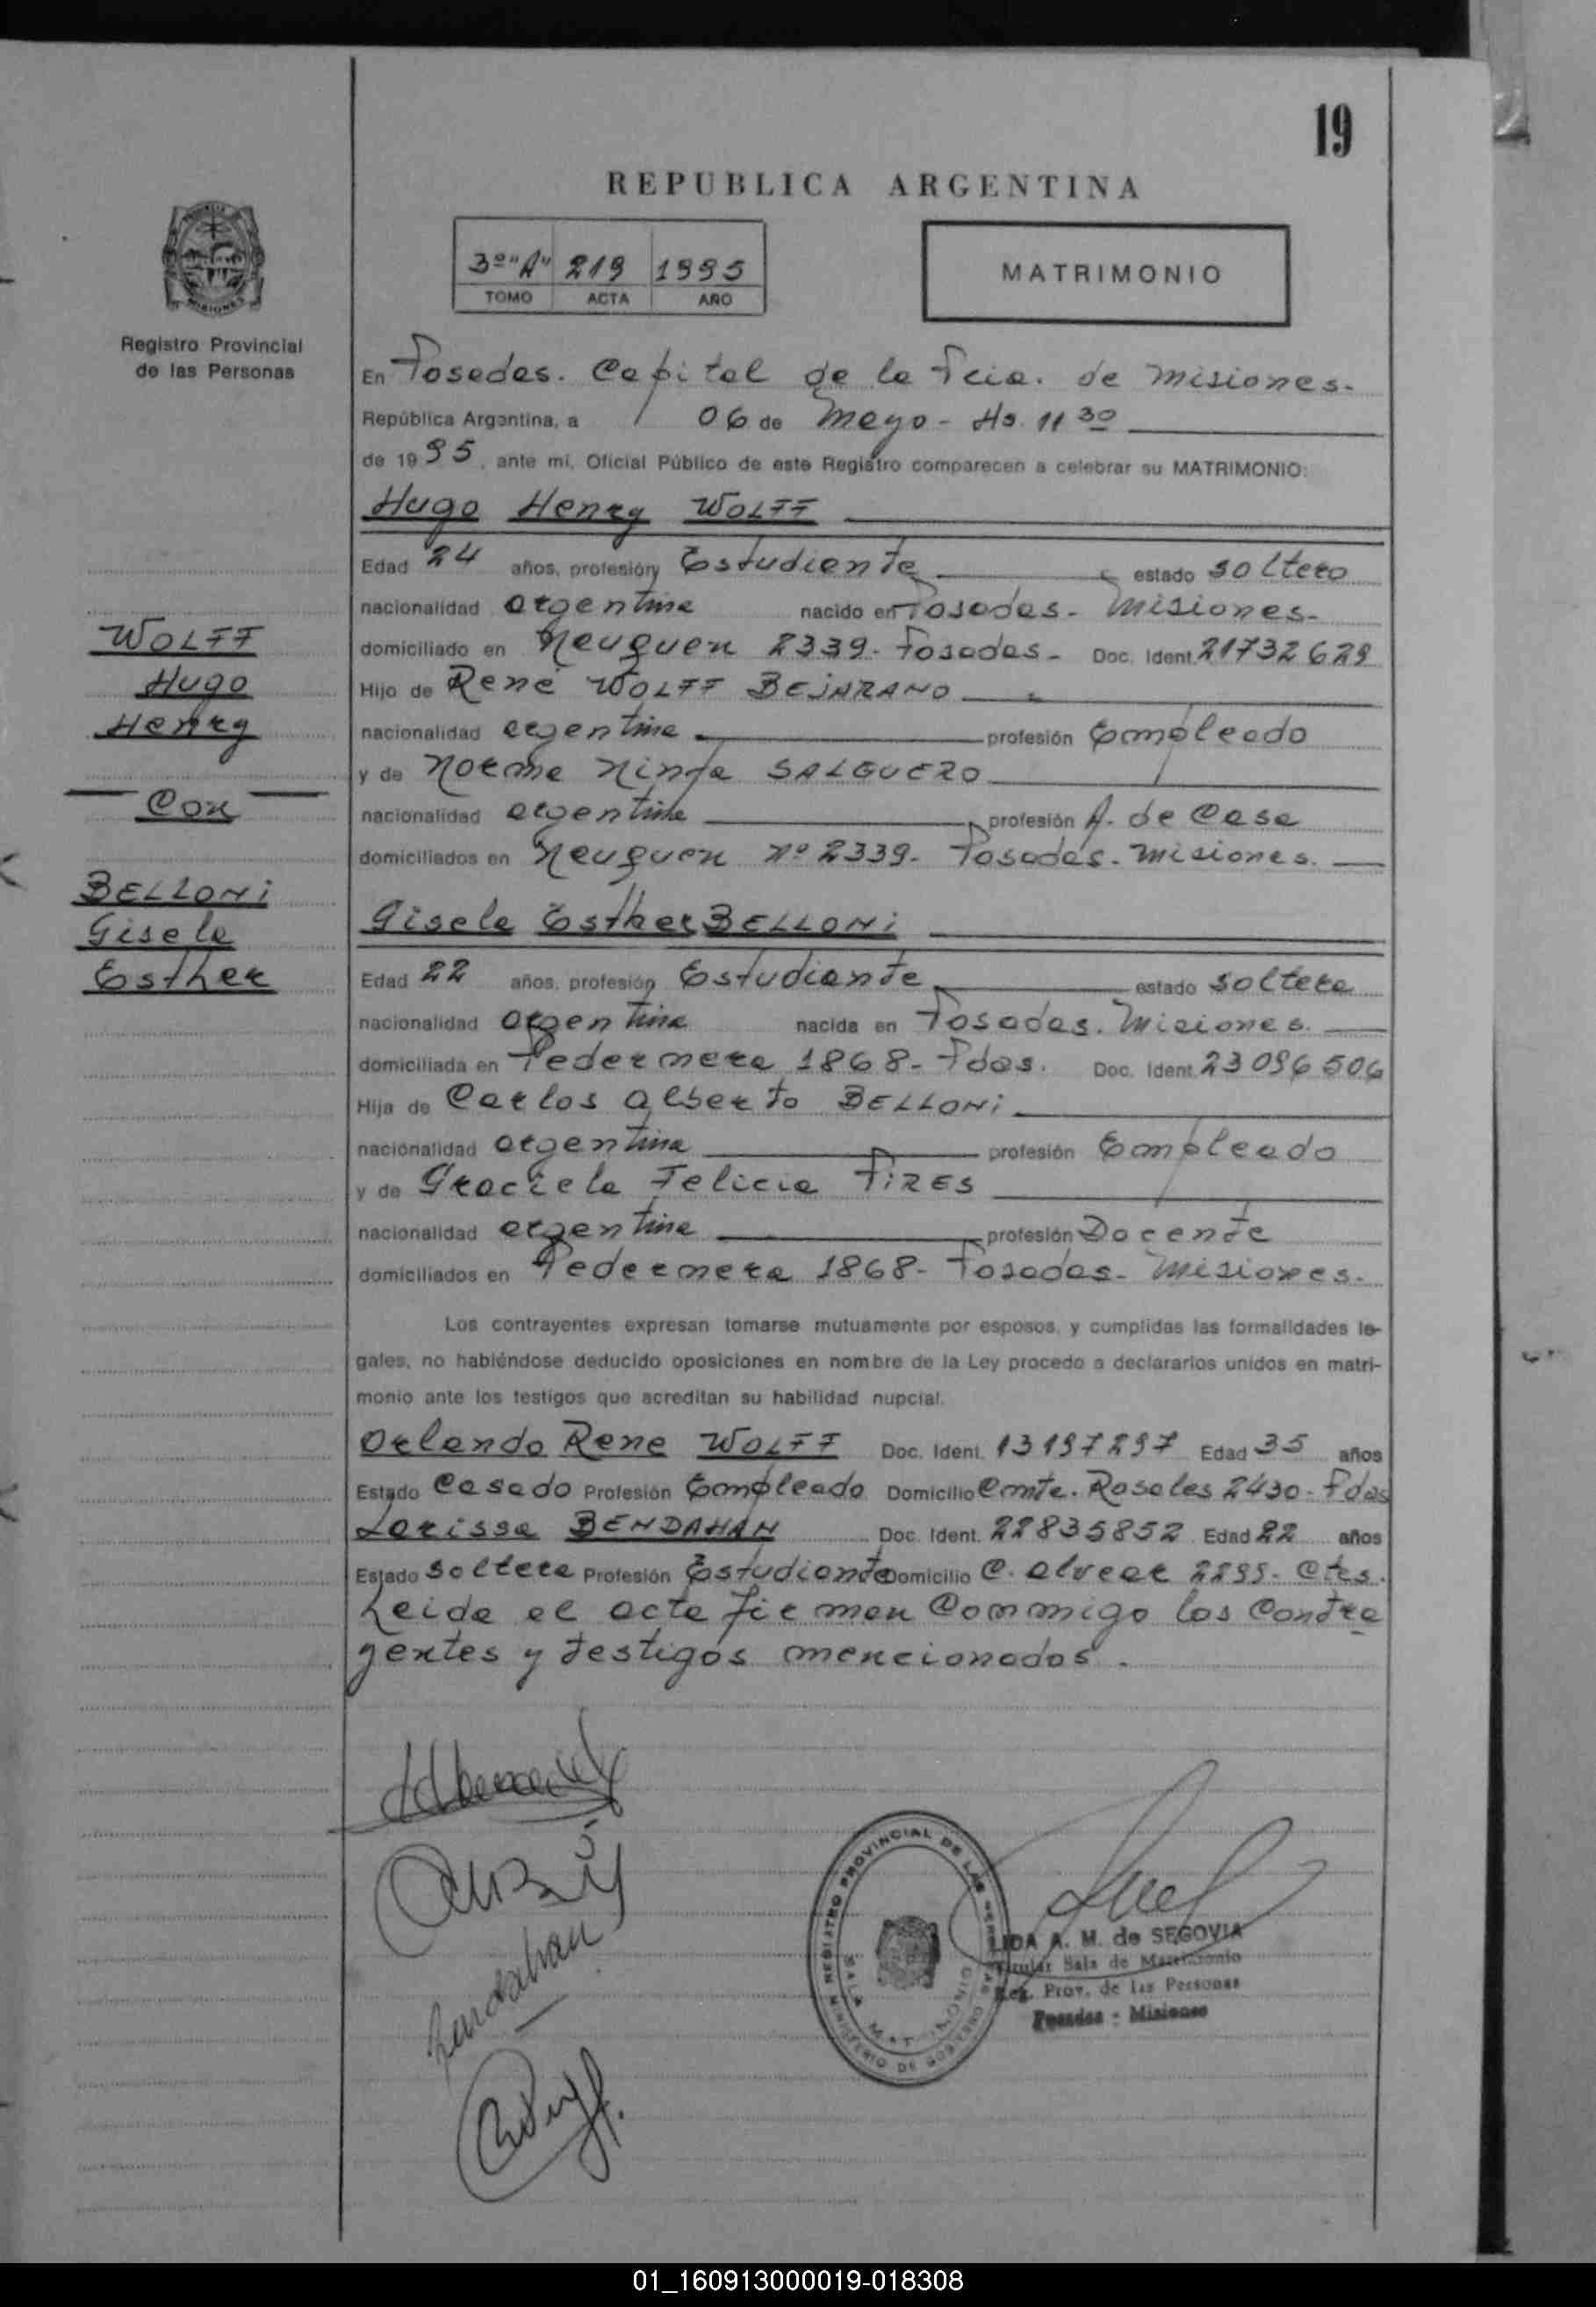 19
REPUBLICA ARGENTINA
3º "A" 219 1995
TOMO ACTA AÑO
MATRIMONIO
Registro Provincial
de las Personas
En Posadas. Capital de la Pcia. de Misiones.
República Argentina, a 06 de Mayo - Hs. 11 30
de 1995, ante mi, Oficial Público de este Registro comparecen a celebrar su MATRIMONIO:
Hugo Henry WOLFF
Edad 24 años, profesión Estudiante estado soltero
nacionalidad argentina nacido en Posadas - Misiones.
domiciliado en Neuquen 2339 - Posadas - Doc. Ident. 21732629
Hijo de René WOLFF BEJARANO
nacionalidad argentina profesión Empleado
y de Norma Ninfa SALGUERO
nacionalidad argentina profesión A. de Casa
domiciliados en Neuquen Nº 2339 - Posadas - Misiones.
WOLFF
Hugo
Henry
Con
BELLONI
Gisela
Esther
Gisela Esther BELLONI
Edad 22 años, profesión Estudiante estado soltera
nacionalidad argentina nacida en Posadas. Misiones.
domiciliada en Pedernera 1868 - Pdas. Doc. Ident. 23096506
Hija de Carlos Alberto BELLONI
nacionalidad argentina profesión Empleado
y de Graciela Felicia PIRES
nacionalidad argentina profesión Docente
domiciliados en Pedernera 1868 - Posadas - Misiones.
Los contrayentes expresan tomarse mutuamente por esposos, y cumplidas las formalidades le-
gales, no habiéndose deducido oposiciones en nombre de la Ley procedo a declararlos unidos en matri-
monio ante los testigos que acreditan su habilidad nupcial.
Orlando Rene WOLFF Doc. Ident. 13197297 Edad 35 años
Estado Casado Profesión Empleado Domicilio Cmte. Rosales 2430 - Pdas
Larissa BENDAHAN Doc. Ident. 22835852 Edad 22 años
Estado Soltera Profesión Estudiante Domicilio C. Alvear 2299 - Ctes.
Leida el acta firman conmigo los contra
yentes y testigos mencionados.
Bendahan
REGISTRO PROVINCIAL DE LAS PERSONAS
MINISTERIO DE GOBIERNO
LIDA A. M. de SEGOVIA
Titular Sala de Matrimonio
Reg. Prov. de las Personas
Posadas - Misiones
01_160913000019-018308